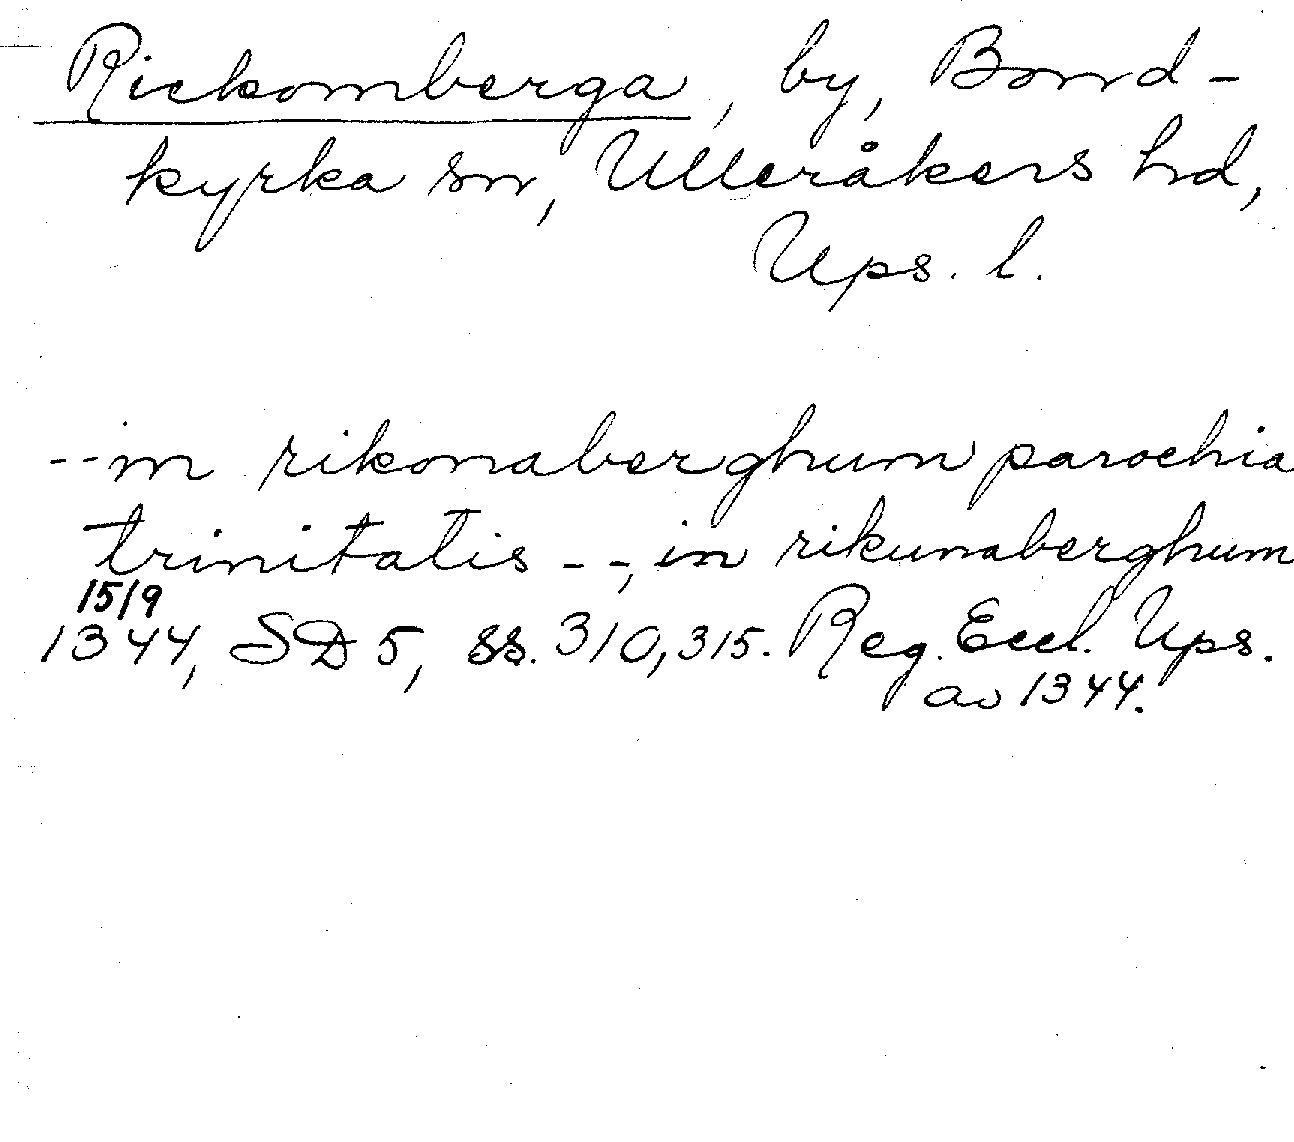 Rickomberga, by, Bond-
kyrka sn, Ulleråkers hd,
Ups. l.
--in rikonaberghum parochia
trinitatis --, in rikunaberghum
15/9
1344, SD 5, ss. 310, 315. Reg. Eccl. Ups.
av 1344.